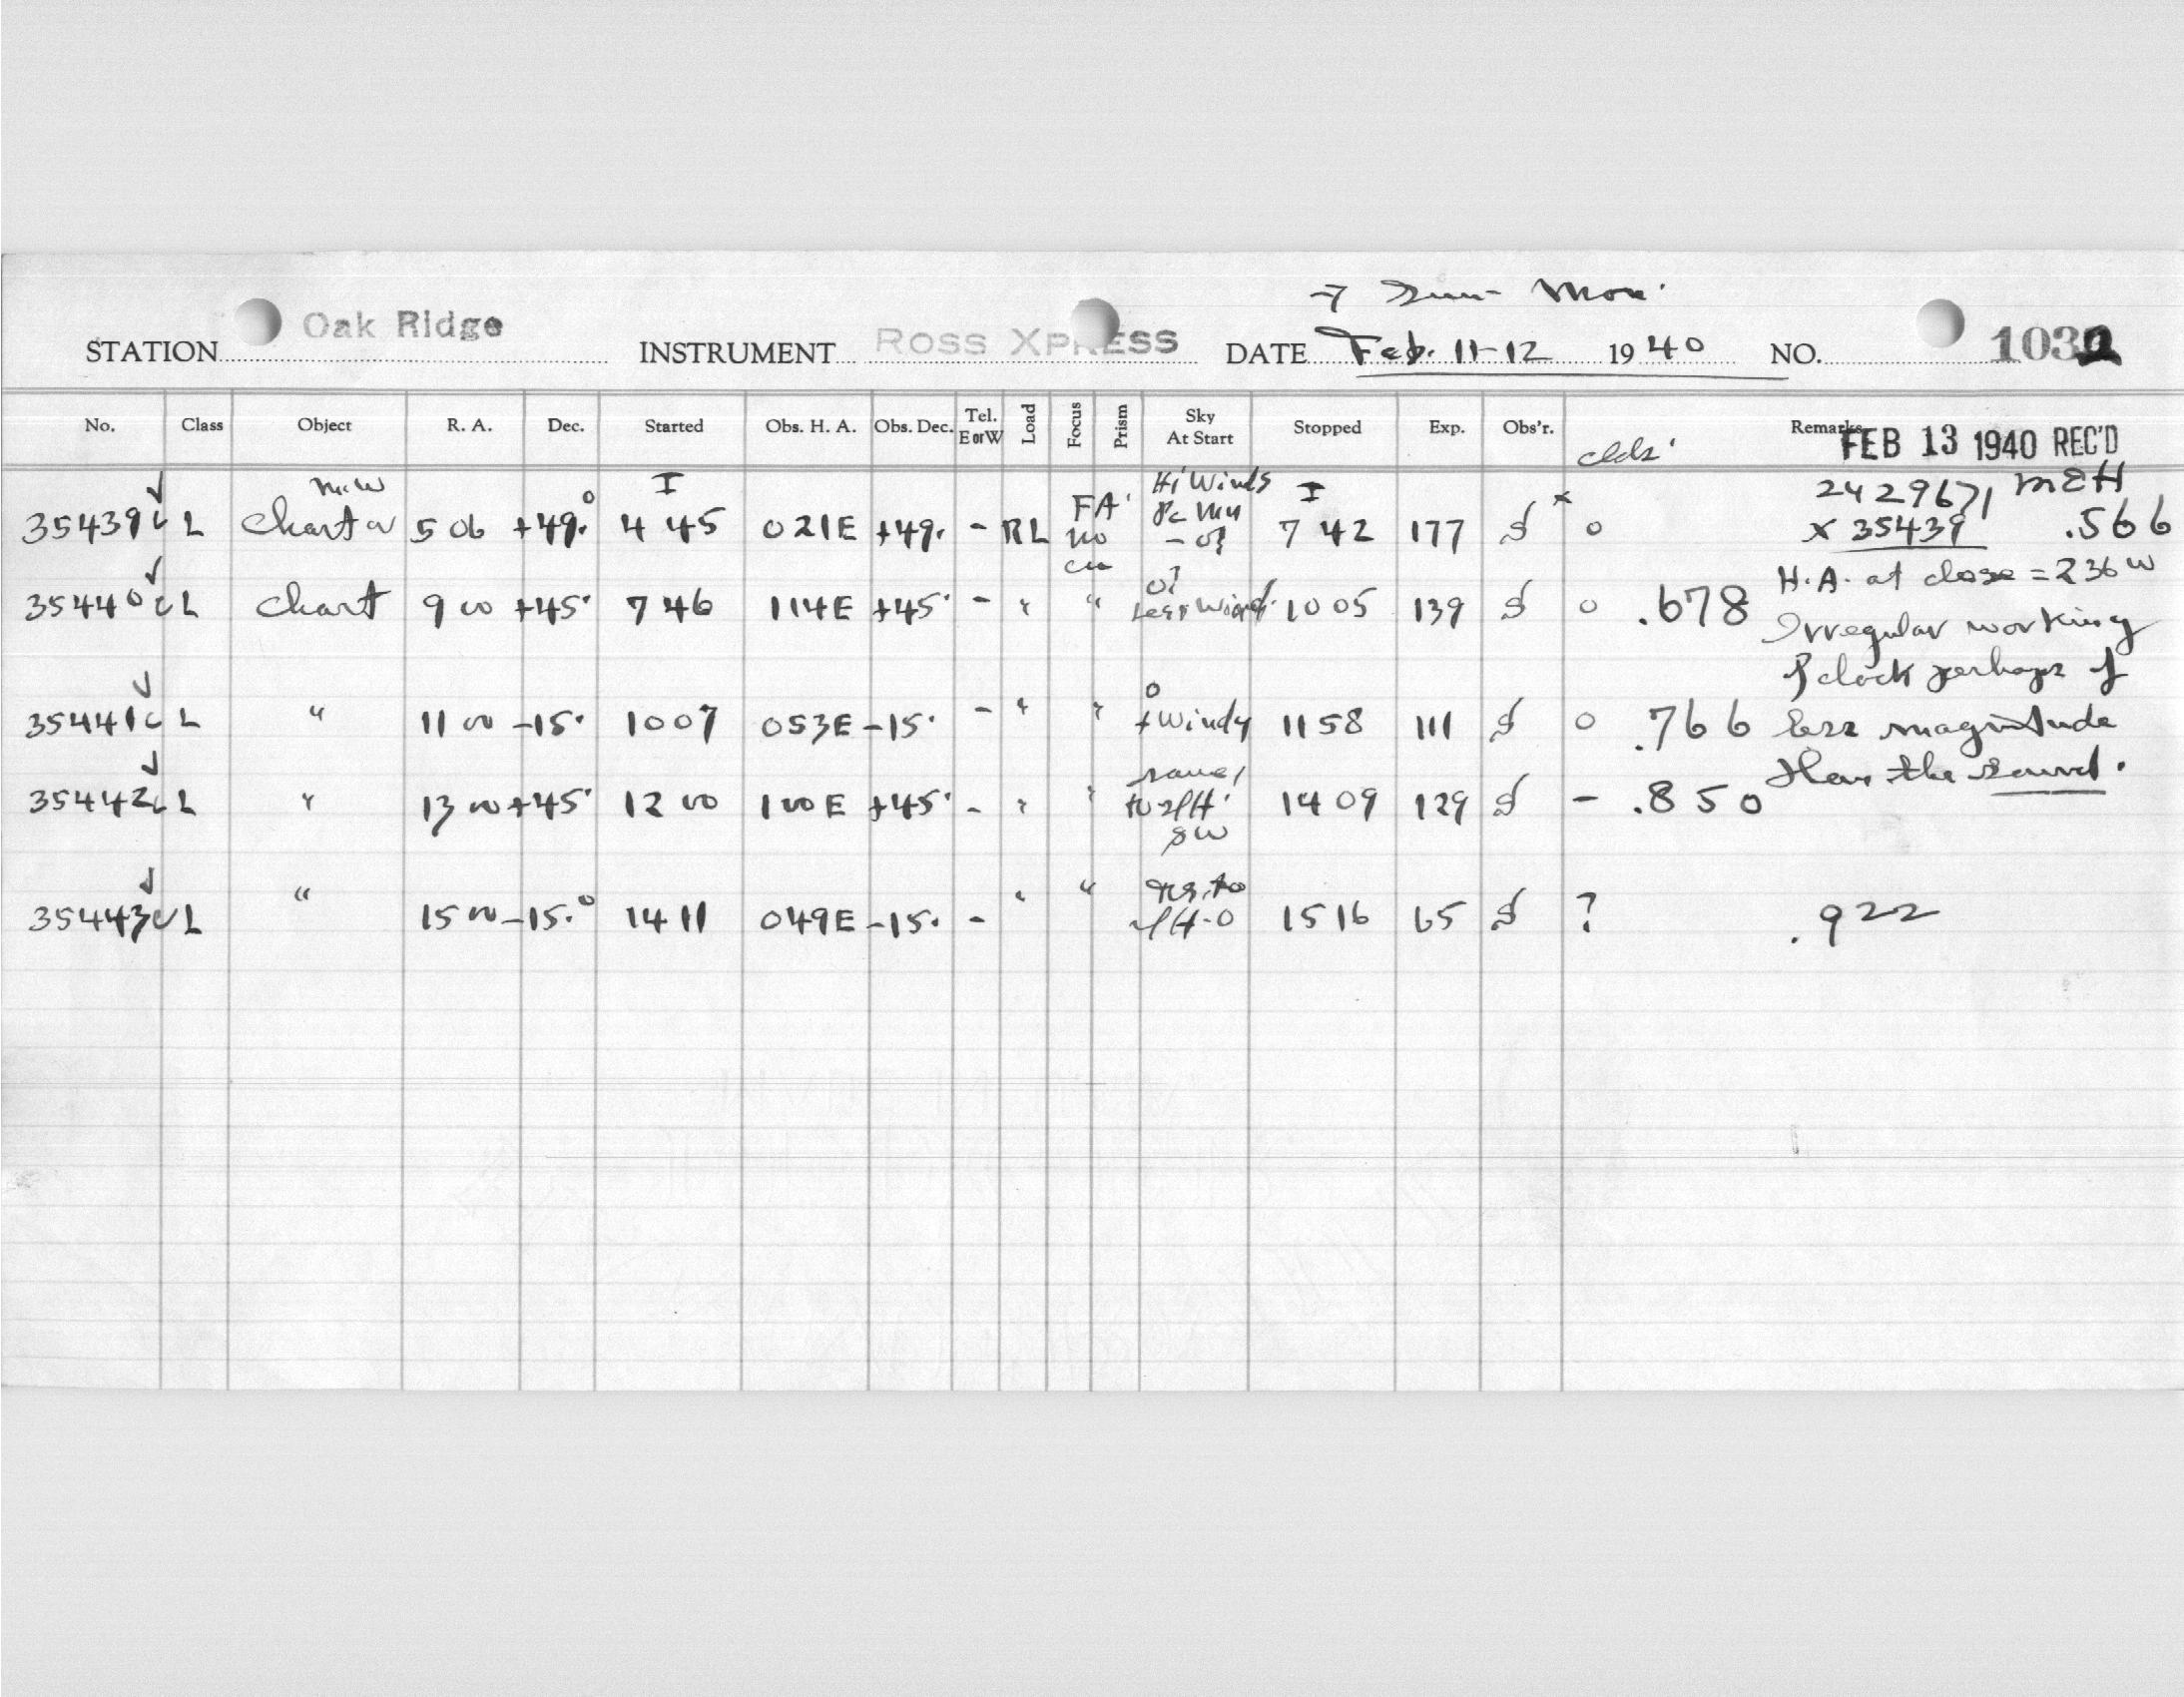 Sun - Mon.
STATION Oak Ridge INSTRUMENT ROSS XPRESS DATE Feb. 11-12 1940 NO. 1032
No. Class Object R. A. Dec. Started Obs. H. A. Obs. Dec. Tel. E or W Load Focus Prism Sky At Start Stopped Exp. Obs'r. clds' Remarks
FEB 13 1940 REC'D
M.W I Hi Winds I 2429671 MEH
35439 L Chart 5 06 +49.° 4 45 021E +49. - RL FA' no 7 42 177 x o x 35439 .566
H.A. at close = 236 W
35440 L Chart 9 00 +45° 7 46 114E +45° - " " " o? Less wind. 10 05 139 o .678 Irregular working
clock perhaps of
35441 L " 11 00 -15. 10 07 053E -15. - " " o + windy 11 58 111 o .766 less magnitude
Hear the sound.
35442 L " 13 00 +45° 12 00 100E +45° - " " same / 14 09 129 - .850
SW
35443 L " 15 00 -15.° 14 11 049E -15. - " " 15 16 65 ? .922